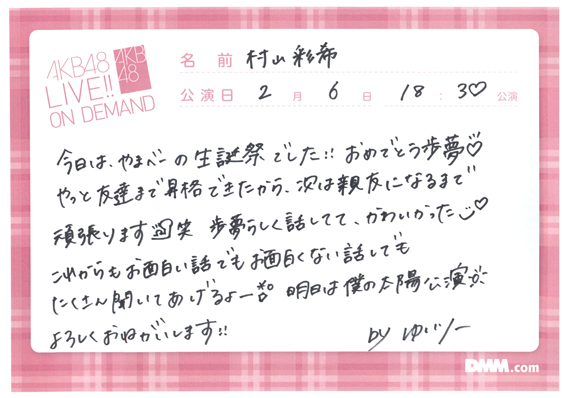 AKB48
LIVE!!
ON DEMAND
AKB
48
名前 村山彩希
公演日 2月6日 18:30公演
今日は、やまべーの生誕祭でした!! おめでとう歩夢♡
やっと友達まで昇格できたから、次は親友になるまで
頑張ります 笑 歩夢らしく話してて、かわいかった♡
これからもお面白い話でもお面白くない話しても
たくさん聞いてあげるよー 明日は僕の太陽公演
よろしくおねがいします!!
by ゆいりー
DMM.com